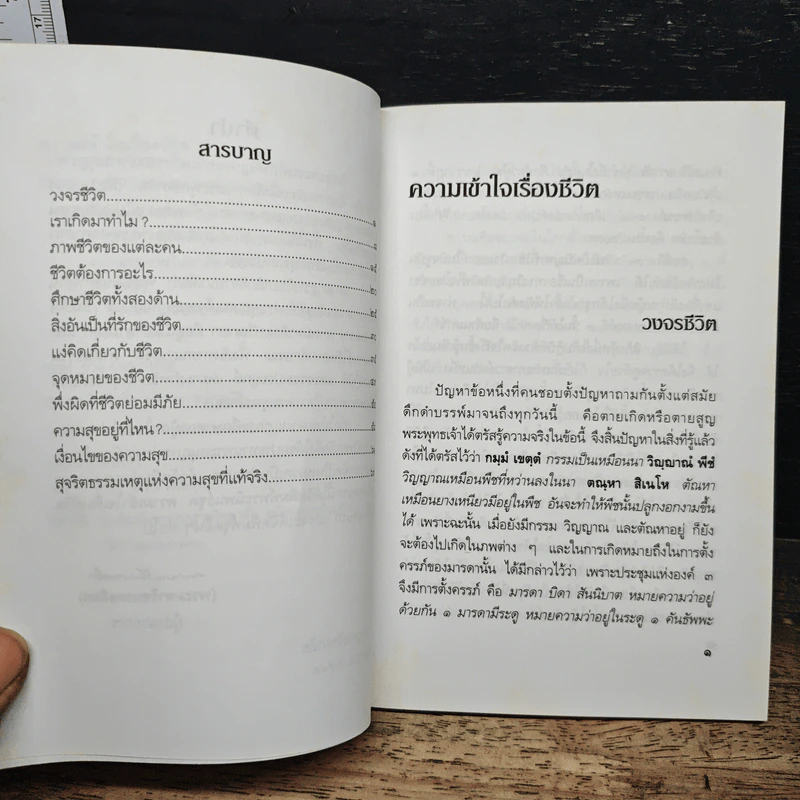 17
สารบาญ
วงจรชีวิต
เราเกิดมาทำไม ?
ภาพชีวิตของแต่ละคน
ชีวิตต้องการอะไร
ศึกษาชีวิตทั้งสองด้าน
สิ่งอันเป็นที่รักของชีวิต
แง่คิดเกี่ยวกับชีวิต
จุดหมายของชีวิต
พึ่งผิดที่ชีวิตย่อมมีภัย
ความสุขอยู่ที่ไหน ?
เงื่อนไขของความสุข
สุจริตธรรมเหตุแห่งความสุขที่แท้จริง
ความเข้าใจเรื่องชีวิต
วงจรชีวิต
ปัญหาข้อหนึ่งที่คนชอบตั้งปัญหาถามกันตั้งแต่สมัย
ดึกดำบรรพ์มาจนถึงทุกวันนี้ คือตายเกิดหรือตายสูญ
พระพุทธเจ้าได้ตรัสรู้ความจริงในข้อนี้ จึงสิ้นปัญหาในสิ่งที่รู้แล้ว
ดังที่ได้ตรัสไว้ว่า กมฺมํ เขตฺตํ กรรมเป็นเหมือนนา วิญฺญาณํ พีชํ
วิญญาณเหมือนพืชที่หว่านลงในนา ตณฺหา สิเนโห ตัณหา
เหมือนยางเหนียวมีอยู่ในพืช อันจะทำให้พืชนั้นปลูกงอกงามขึ้น
ได้ เพราะฉะนั้น เมื่อยังมีกรรม วิญญาณ และตัณหาอยู่ ก็ยัง
จะต้องไปเกิดในภพต่าง ๆ และในการเกิดหมายถึงในการตั้ง
ครรภ์ของมารดานั้น ได้มีกล่าวไว้ว่า เพราะประชุมแห่งองค์ ๓
จึงมีการตั้งครรภ์ คือ มารดา บิดา สันนิบาต หมายความว่าอยู่
ด้วยกัน ๑ มารดามีระดู หมายความว่าอยู่ในระดู ๑ คันธัพพะ
๑